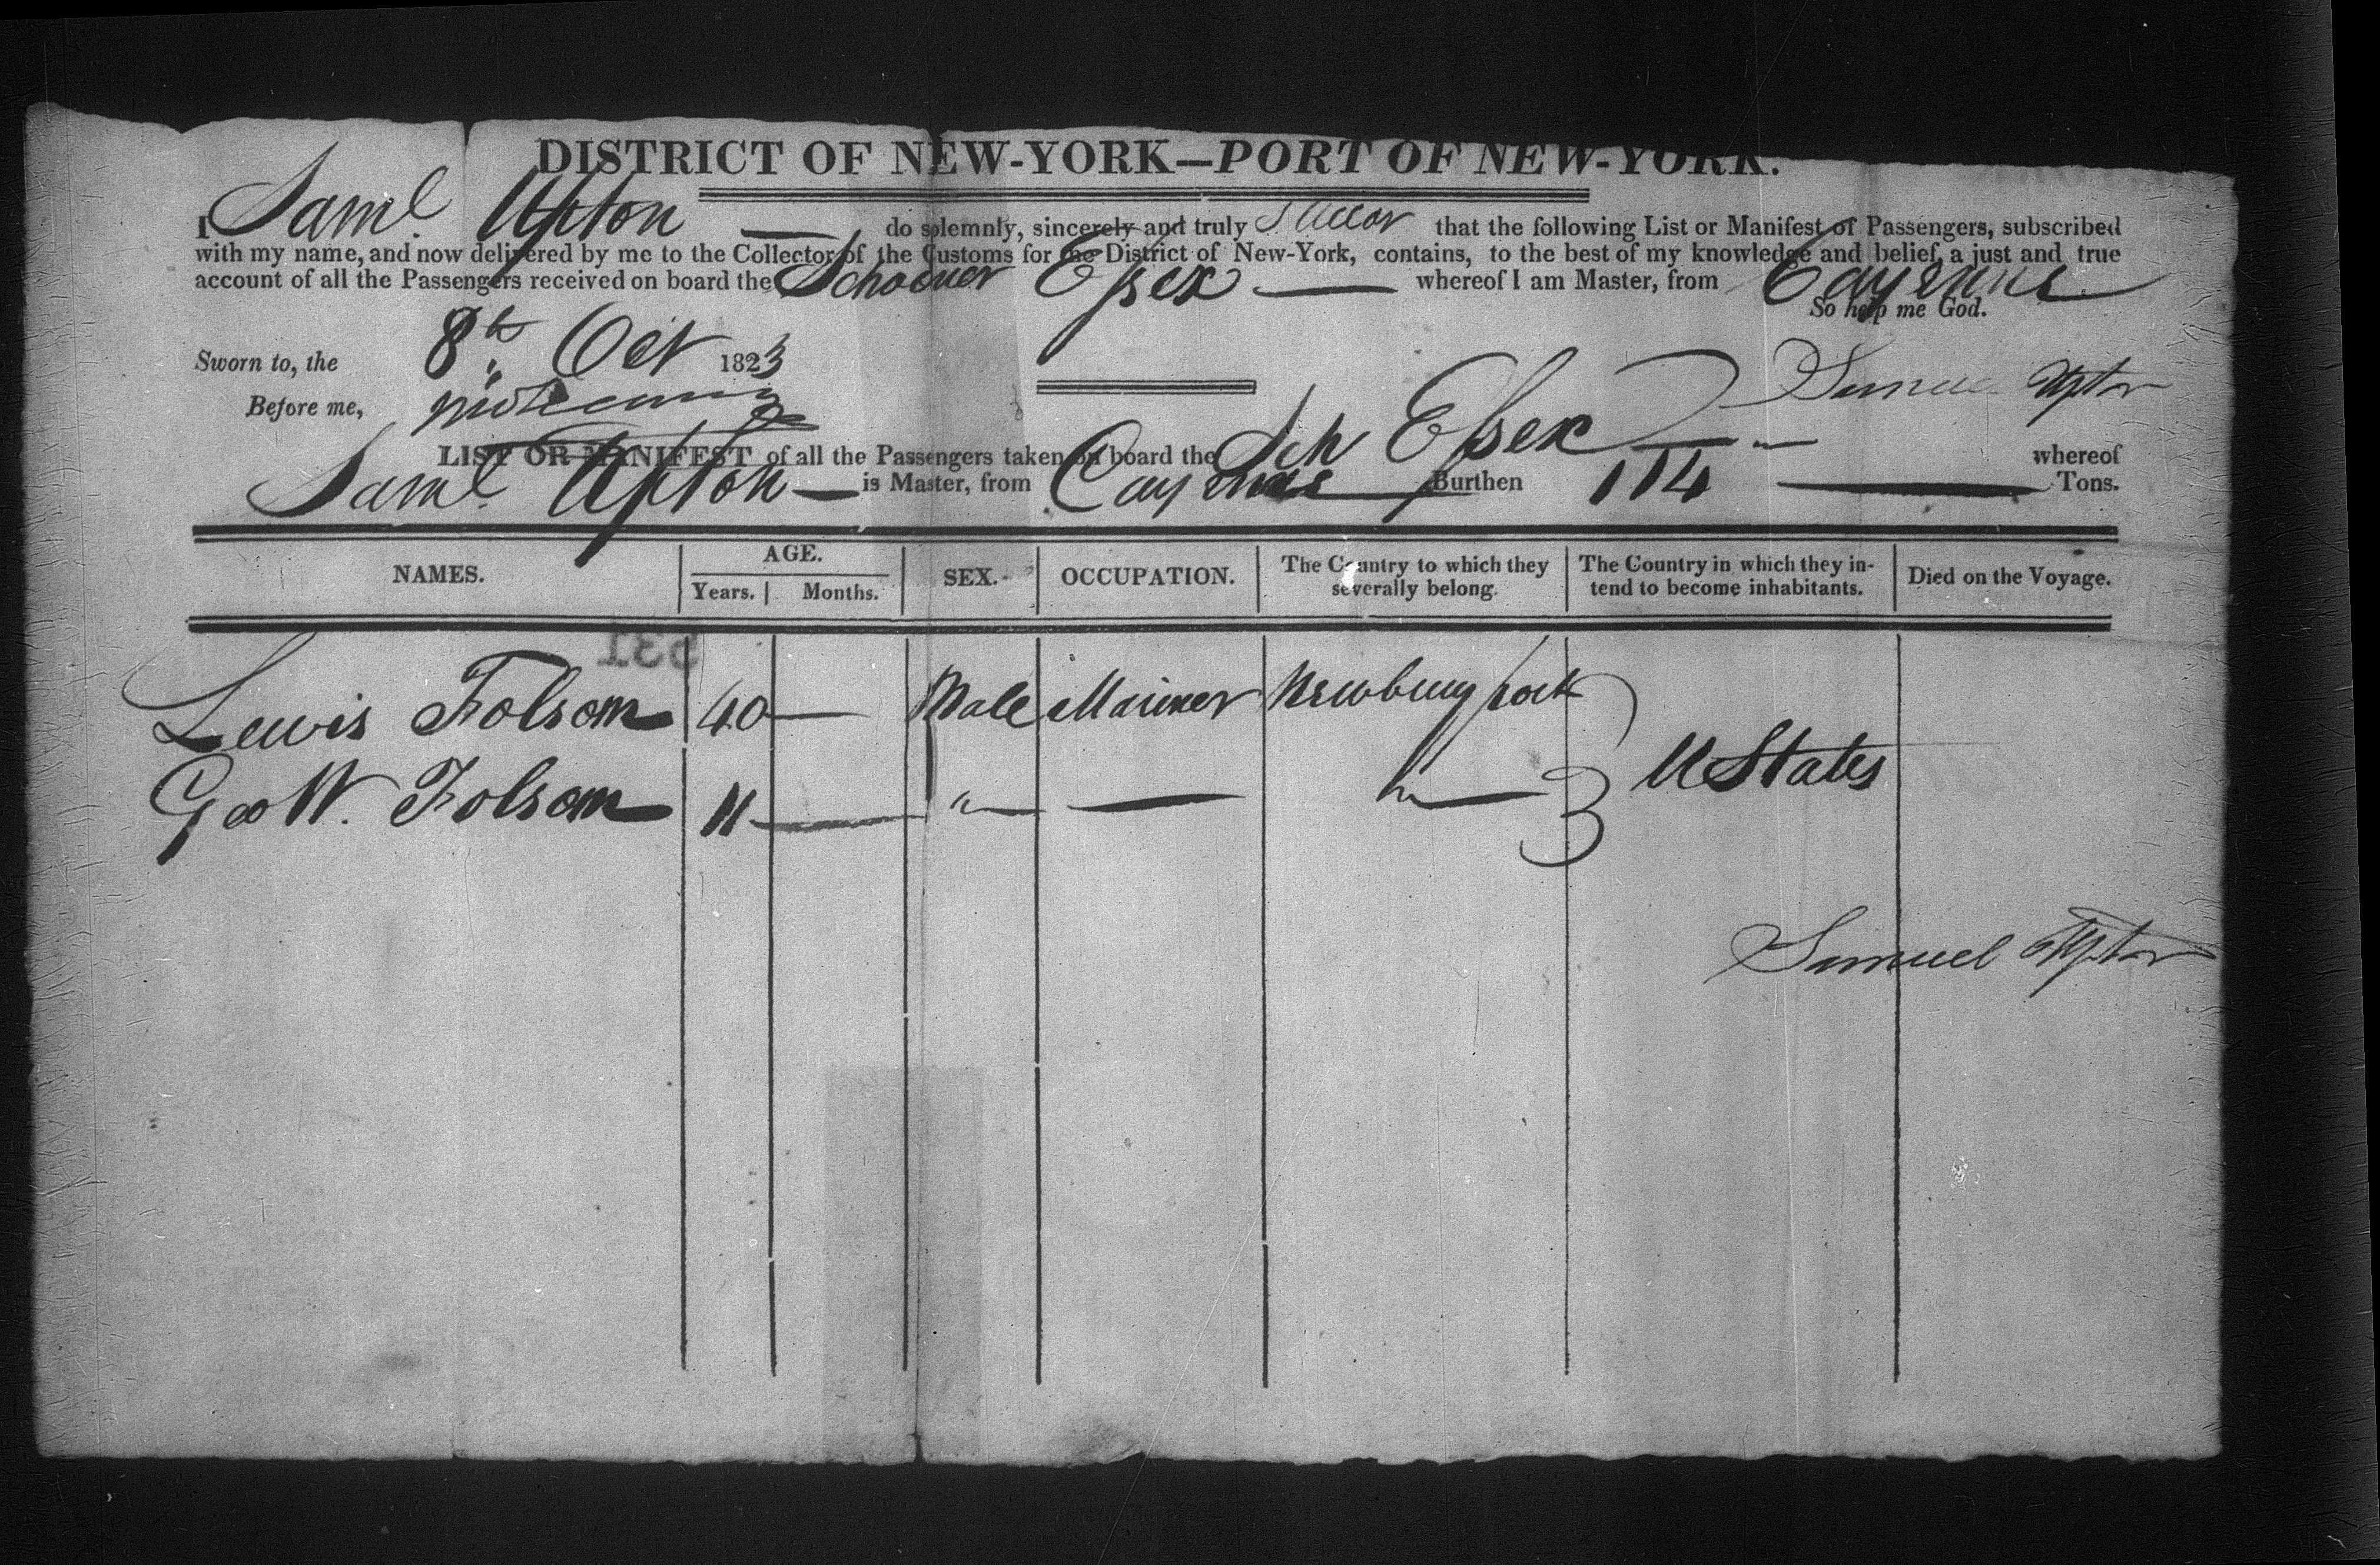 DISTRICT OF NEW-YORK—PORT OF NEW-YORK.
I Saml Upton — do solemnly, sincerely and truly Swear that the following List or Manifest of Passengers, subscribed
with my name, and now delivered by me to the Collector of the Customs for the District of New-York, contains, to the best of my knowledge and belief, a just and true
account of all the Passengers received on board the Schooner Essex — whereof I am Master, from Cayenne
So help me God.
Sworn to, the 8th Oct 1823
Samuel Upton
Before me,
LIST OR MANIFEST of all the Passengers taken on board the Sch Essex — whereof
Saml Upton — is Master, from Cayenne Burthen 114 — Tons.
NAMES. AGE. Years. Months. SEX. OCCUPATION. The Country to which they severally belong. The Country in which they intend to become inhabitants. Died on the Voyage.
531
Lewis Folsom 40 — Male Mariner Newburyport
U States
Geo W. Folsom 11 — " — — " —
Samuel Upton